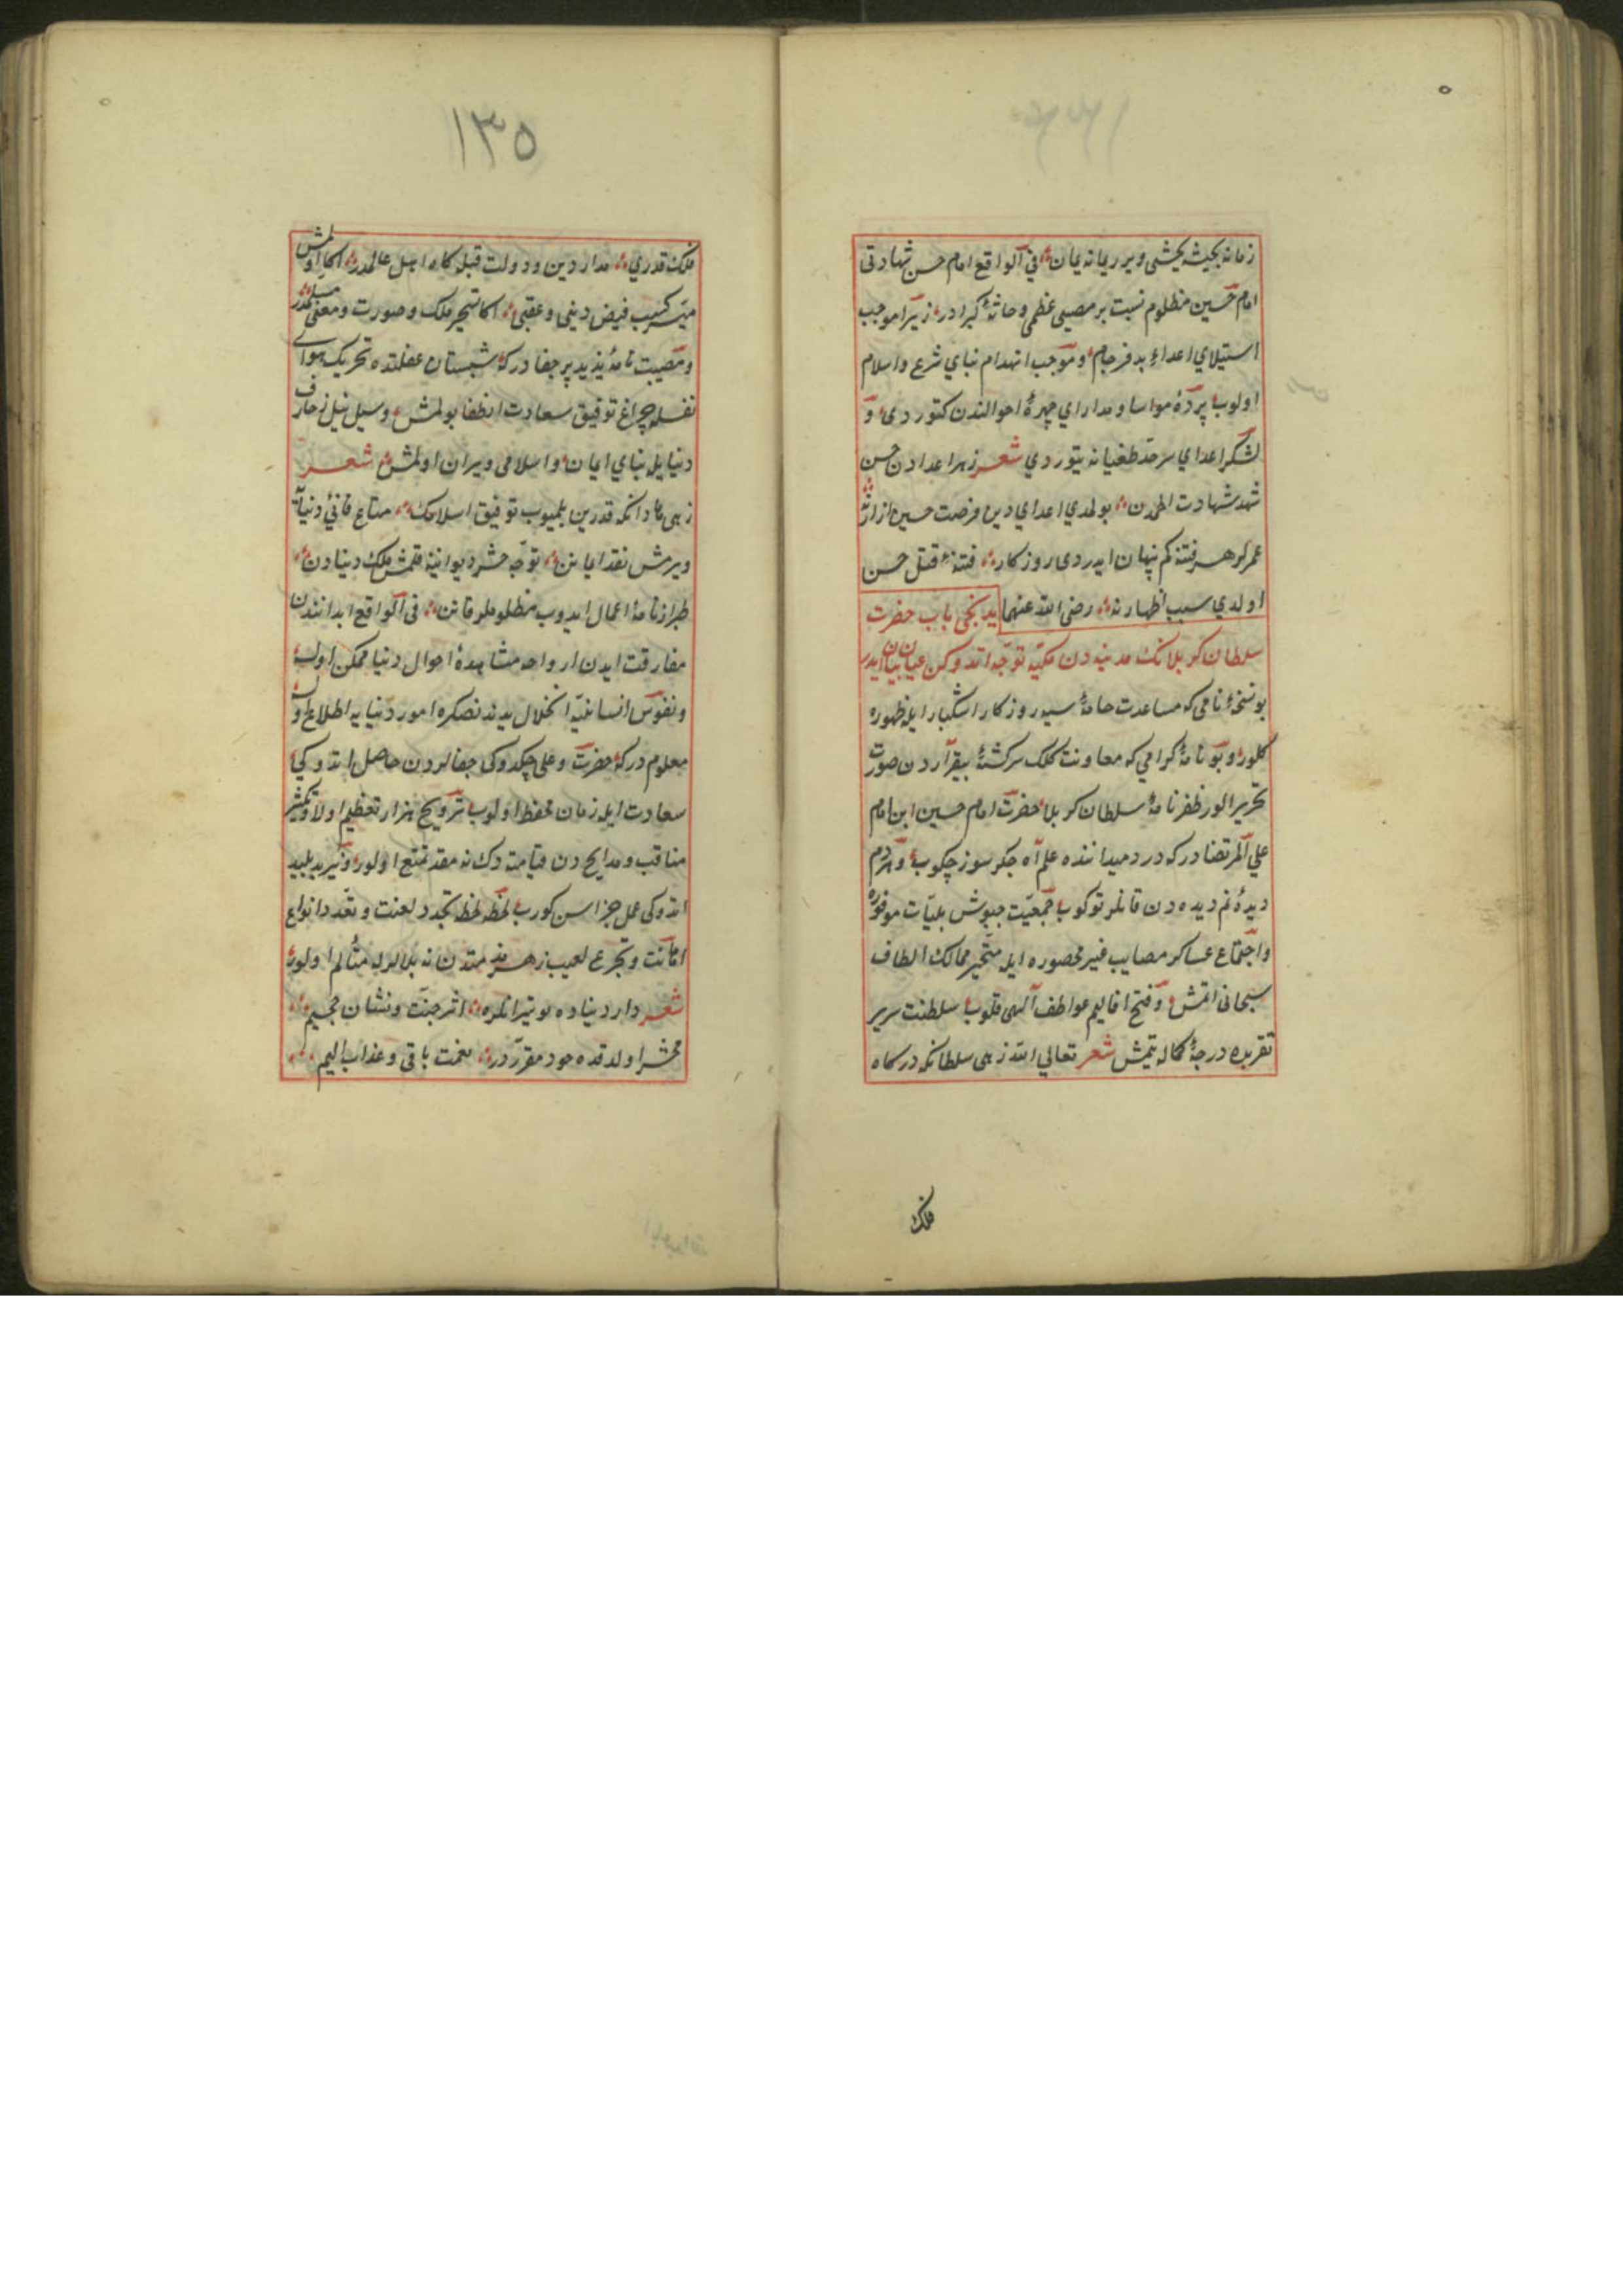 زمانه یخشی یخشی ویرر یمانه یمان فی الواقع امام حسن شهادتی
امام حسین مظلوم نسبت بر مصیبی عظمی و حادثهٔ کبرادر زیرا موجب
استیلای اعداء بدفرجام و موجب انهدام بنای شرع و اسلام
اولوب پردهٔ مواسا و مدارای چهرهٔ احوالندن کتوردی و
لشکر اعدای سرحد طغیانه یتوردی شعر زهر اعدادن حسن
شهد شهادت اطمدن بولدی اعدای دین فرصت حسین ازارنه
عمرلر هر فتنه کم پنهان ایدردی روزکار فتنهٔ قتل حسن
اولدی سبب اظهارنه رضی الله عنهما یدنجی باب حضرت
سلطان کربلانک مدینه دن مکیه توجه اتدوکن عیان بیان ایدر
بو نسخهٔ نامی که مساعدت حامهٔ سیه روزکار اشکبار ایله ظهوره
کلور و بو نامهٔ کرامی که معاونت کلک سرکشتهٔ بیقراردن صورت
تحریر الور ظفرنامهٔ سلطان کربلا حضرت امام حسین ابن امام
علی المرتضادر که درد میداننده علم آه جکرسوز چکوب و هردم
دیدهٔ نم دیده دن قانلر توکوب جمعیت جیوش بلیات موفوره
و اجتماع عساکر مصایب غیر محصوره ایله متحیر ممالک الطاف
سبحانی اتمش و فتح اقالیم عواطف آلهی قلوب سلطنت سریر
تقربده درجهٔ کماله یتمش شعر تعالی الله زهی سلطانکه درکاه
فلک
١٣٥
فلک قدری مدار دین و دولت قبله کاه اهل عالمدر اکا اولمش
میسر کسب فیض دینی و عقبی اکا تسخیر ملک و صورت و معنی مسلمدر
و مصیبت نامهٔ یزید پرجفادر که شبستان غفلتده تحریک هوای
نفسله چراغ توفیق سعادت انطفا بولمش و سیل نیل زخارف
دنیایله بنای ایمان و اسلامی ویران اولمش شعر
زهی نادانکه قدرین بلمیوب توفیق اسلامک متاع فانئ دنیایه
ویرمش نقد ایمانن توجه حشر دیواننه قلمش ملک دنیادن
طراز نامهٔ اعمال ایدوب مظلوملر قانن فی الواقع ابداندن
مفارقت ایدن ارواحه مشاهدهٔ احوال دنیا ممکن اولب
و نفوس انسانیه انحلال بدندنصکره امور دنیایه اطلاع اولسه
معلومدر که حضرت و علی چکدوکی جفالردن حاصل اتدوکی
سعادت ایله زمان محفظ اولوب ترویح هزار تعظیم اولاد و تکثیر
مناقب و مدایح دن قیامته دک نه مقدار تمتع اولور و یزید پلید
اتدوکی عمل جزاسن کورب لحظه لحظه تجدد لعنت و تعدد انواع
اهانت و تجرع لعیب زهر مذمتدن نه بلالرله متألم اولور
شعر دار دنیاده لو تیز انلره اثر جنت و نشان جحیم
محشر اولدقده خود مقرردر نعمت باقی و عذاب الیم